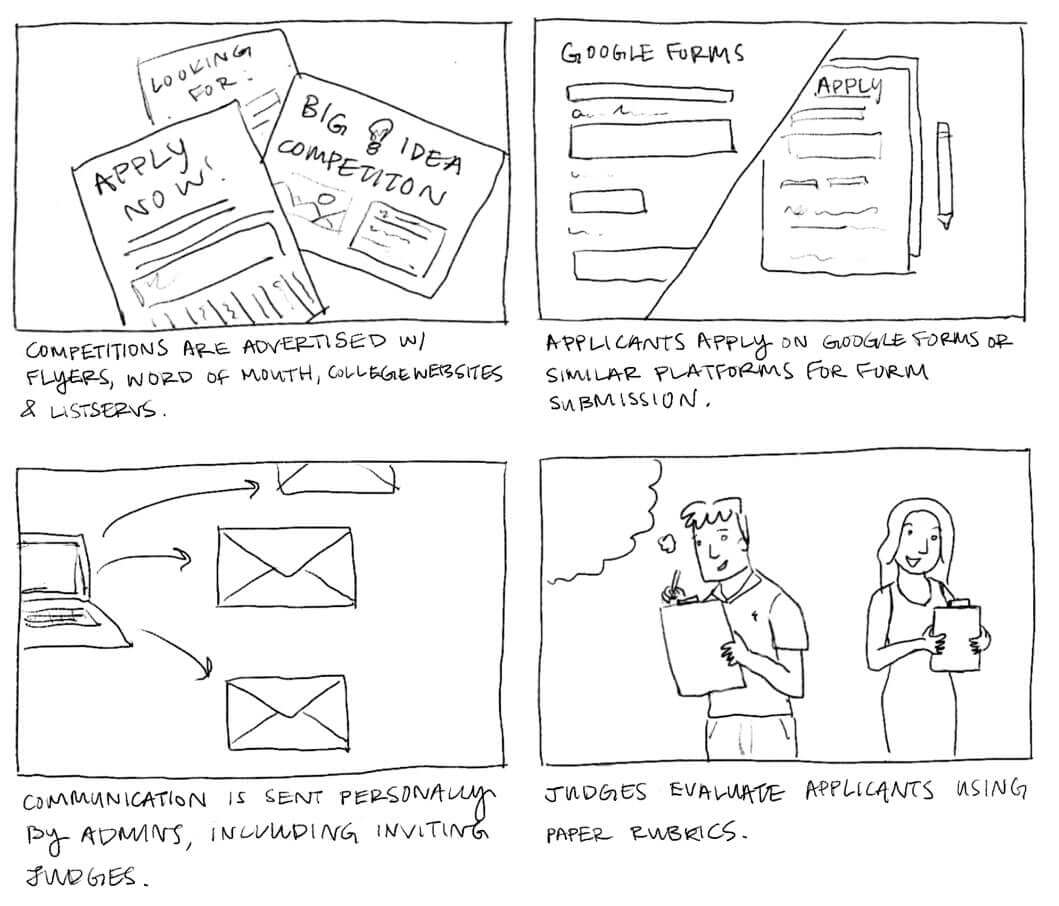 LOOKING
FOR:
APPLY
NOW!
BIG IDEA
COMPETITON
COMPETITIONS ARE ADVERTISED W/
FLYERS, WORD OF MOUTH, COLLEGE WEBSITES
& LISTSERVS.
GOOGLE FORMS
APPLY
APPLICANTS APPLY ON GOOGLE FORMS OR
SIMILAR PLATFORMS FOR FORM
SUBMISSION.
COMMUNICATION IS SENT PERSONALLY
BY ADMINS, INCLUDING INVITING
JUDGES.
JUDGES EVALUATE APPLICANTS USING
PAPER RUBRICS.